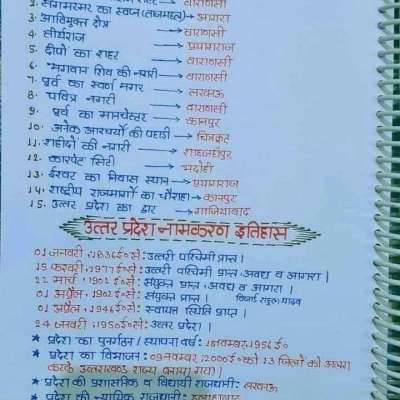 वाराणसी
2. संगमरमर का स्वप्न (ताजमहल) → आगरा
3. अविमुक्त क्षेत्र → वाराणसी
4. तीर्थराज → प्रयागराज
5. दीपों का शहर → वाराणसी
6. भगवान शिव की नगरी → वाराणसी
7. पूर्व का स्वर्ण नगर → लखनऊ
8. पवित्र नगरी → वाराणसी
9. पूर्व का मानचेस्टर → कानपुर
10. अनेक आश्चर्यों की पहाड़ी → चित्रकूट
11. शहीदों की नगरी → शाहजहाँपुर
12. कारपेट सिटी → भदोही
13. ईश्वर का निवास स्थान → प्रयागराज
14. राष्ट्रीय राजमार्गों का चौराहा → कानपुर
15. उत्तर प्रदेश का द्वार → गाजियाबाद
उत्तर प्रदेश नामकरण इतिहास
01 जनवरी, 1836ई० से: उत्तरी पश्चिमी प्रान्त।
15 फरवरी, 1877ई० से: उत्तरी पश्चिमी प्रान्त अवध व आगरा।
22 मार्च, 1902 ई० से: संयुक्त प्रान्त, अवध व आगरा।
01 अप्रैल, 1902 ई० से: संयुक्त प्रान्त।
01 अप्रैल, 1946ई० से: स्वायत्त स्थिति प्राप्त।
24 जनवरी, 1950ई० से: उत्तर प्रदेश।
★ प्रदेश का पुनर्गठन / स्थापना वर्ष: 1 नवम्बर, 1956 ई०
★ प्रदेश का विभाजन: 09 नवम्बर, 2000ई० को 13 जिलों को अलग
करके उत्तराखण्ड राज्य बनाया गया।
★ प्रदेश की प्रशासनिक व विधायी राजधानी: लखनऊ
★ प्रदेश की न्यायिक राजधानी: इलाहाबाद